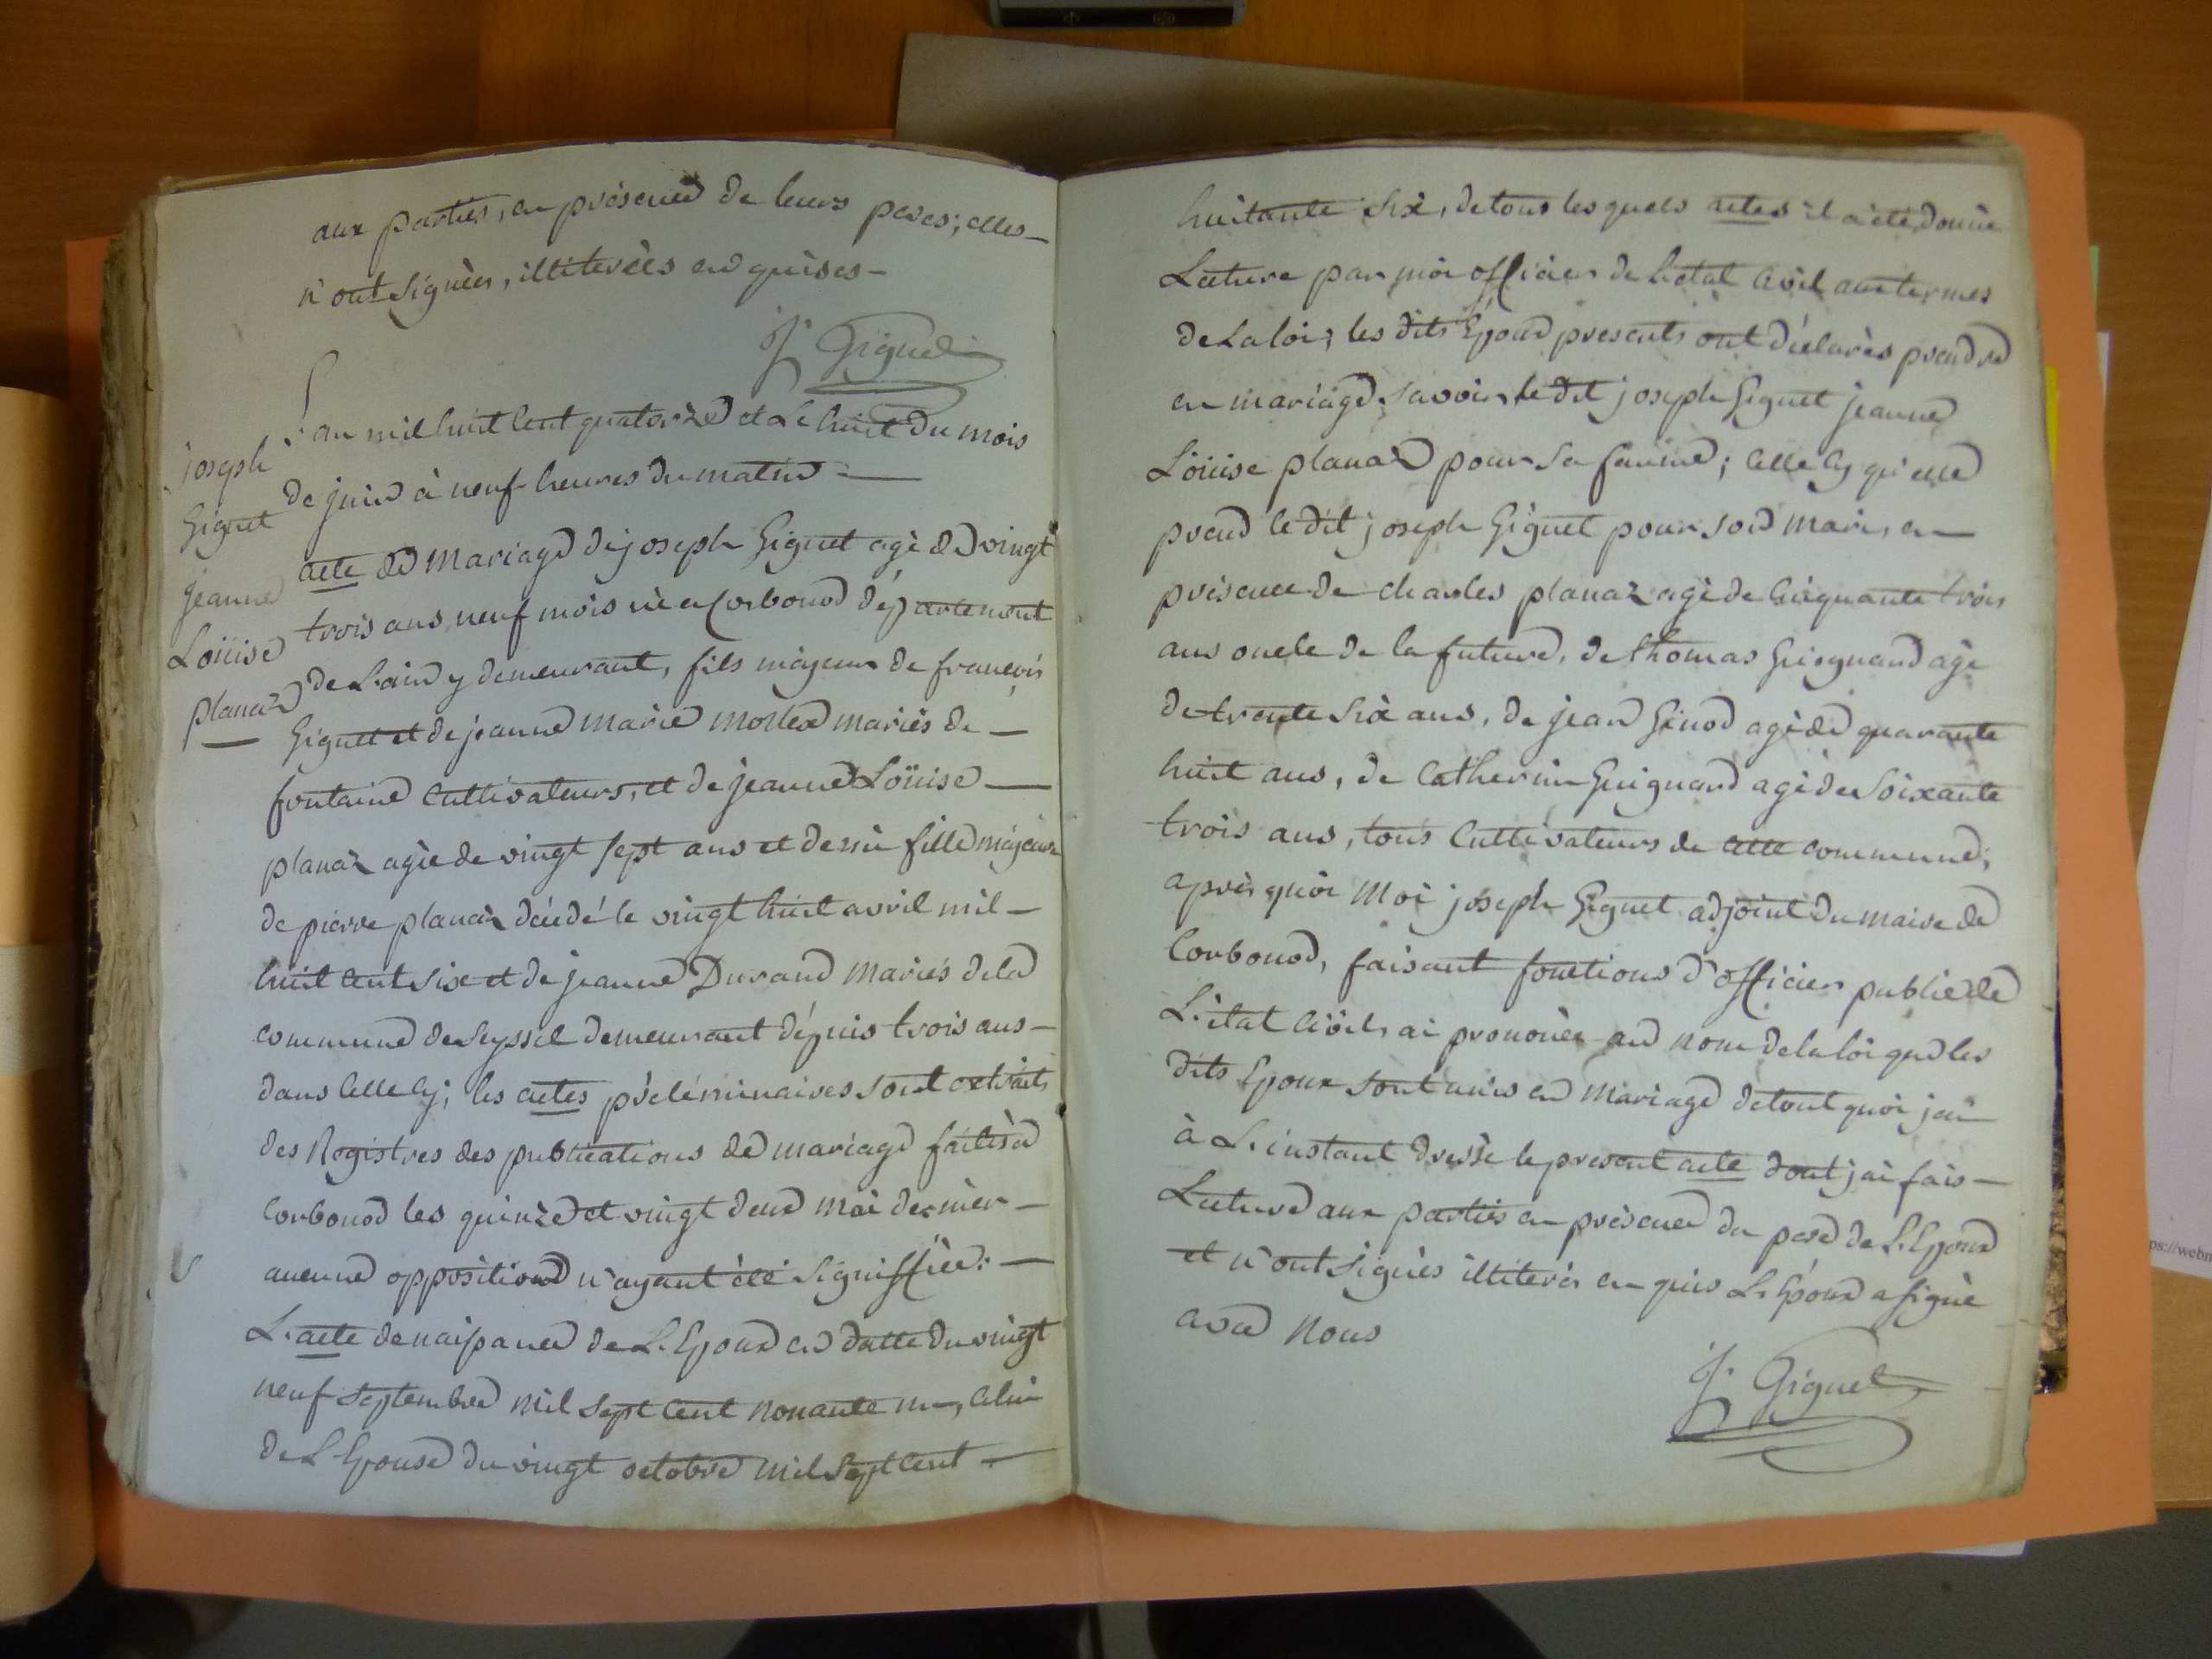 aux parties, en présence de leurs peres; elles
n'ont signées, illiterées enquises
J. Giguet
joseph
Giguet
jeanne
Loüise
planaz
L'an mil huit cent quatorze et Le huit du mois
de juin à neuf heures du matin
acte de mariage de joseph Giguet agé de vingt
trois ans neuf mois né a Corbonod département
de L'ain y demeurant, fils majeur de francois
Giguet et de jeanne marie mollex mariés de
fontaine Cultivateurs, et de jeanne Loüise
planaz agée de vingt sept ans et demi fille majeure
de pierre planaz décédé le vingt huit avril mil
huit cent six et de jeanne Durand mariés de la
commune de Seyssel demeurant dépuis trois ans
dans Celle Cy; les actes préléminaires sont extraits
des Registres des publications de mariage faites a
Corbonod les quinze et vingt deux mai dernier
aucune opposition n'ayant été signiffiée:
L'acte de naissance de L'Epoux en datte du vingt
neuf septembre mil sept cent nonante un, Celui
de L'Epouse du vingt octobre mil sept cent
huitante six, de tous les quels actes il a été donné
Lecture par moi officier de L'etat Civil aux termes
de La loi; les dits Epoux presents ont déclarés prendre
en mariage, savoir le dit joseph Giguet jeanne
Loüise planaz pour sa femme; Celle Cy qu'elle
prend le dit joseph Giguet pour son mari, en
présence de charles planaz agé de Cinquante trois
ans oncle de la future, de thomas Guignard agé
de trente six ans, de jean Ginod agé de quarante
huit ans, de Catherin Guignard agé de Soixante
trois ans, tous Cultivateurs de cette commune;
après quoi Moi joseph Giguet adjoint du maire de
Corbonod, faisant fonctions d'officier public de
L'état Civil, ai prononcé au nom de la loi que les
dits Epoux sont unis en mariage de tout quoi jai
à L'instant dressé le present acte dont jai fais
Lecture aux parties en présence du pere de L'Epoux
et n'ont signés illiterés enquis L'Epoux a signé
avec Nous
J. Giguet